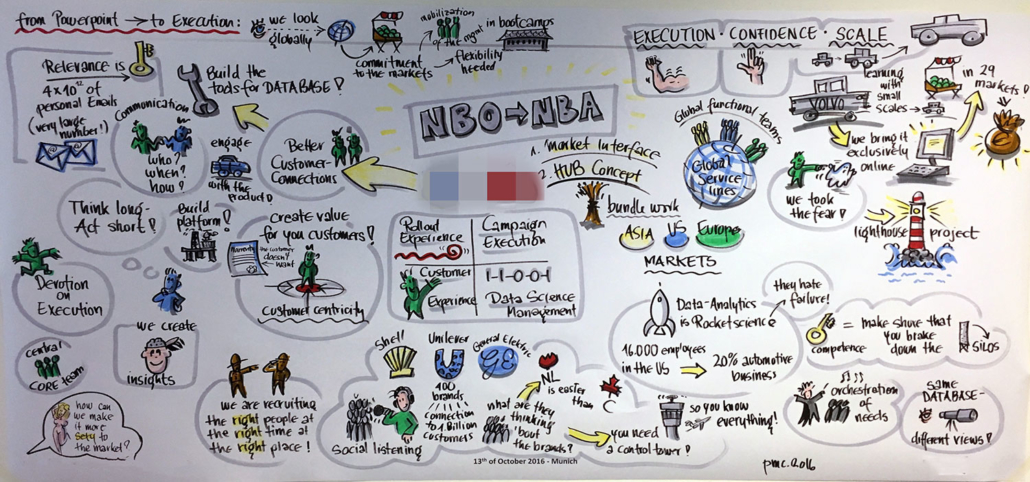 from Powerpoint → to Execution:
we look
globally
commitment
to the markets
mobilization
of the mgmt
flexibility
needed
in bootcamps
EXECUTION · CONFIDENCE · SCALE
learning
with
small
scales
in 29
markets!
VOLVO
we bring it
exclusively
online
Relevance is
4×10¹² of
personal Emails
(very large
number!)
Communication
who?
when?
how?
Build the
tools for DATABASE!
engage
with the
product!
Better
Customer-
Connections
NBO→NBA
1. market Interface
2. HUB Concept
bundle work
Global functional teams
Global
Service
lines
ASIA US Europe
MARKETS
we took
the fear!
lighthouse project
Think long-
Act short!
Build
platform!
create value
for you customers!
Warranty
the customer
doesn't
want
customer centricity
Rollout
Experience
Campaign
Execution
Customer
Experience
1-1-0-0-1
Data Science
Management
Devotion
on
Execution
we create
insights
central
CORE team
how can
we make
it more
sety to
the market?
we are recruiting
the right people at
the right time at
the right place!
Shell
Unilever
General Electric
GE
100
brands
connection
to 1 Billion
customers
Social listening
what are they
thinking
'bout
the brands?
NL
is easier
than
you need
a control tower!
so you know
everything!
Data-Analytics
is Rocketscience
they hate
failure!
16.000 employees
in the US → 20% automotive
business
competence
= make shure that
you brake
down the SILOS
orchestration
of
needs
same
DATABASE-
different views!
13th of October 2016 - Munich
pmc.2016